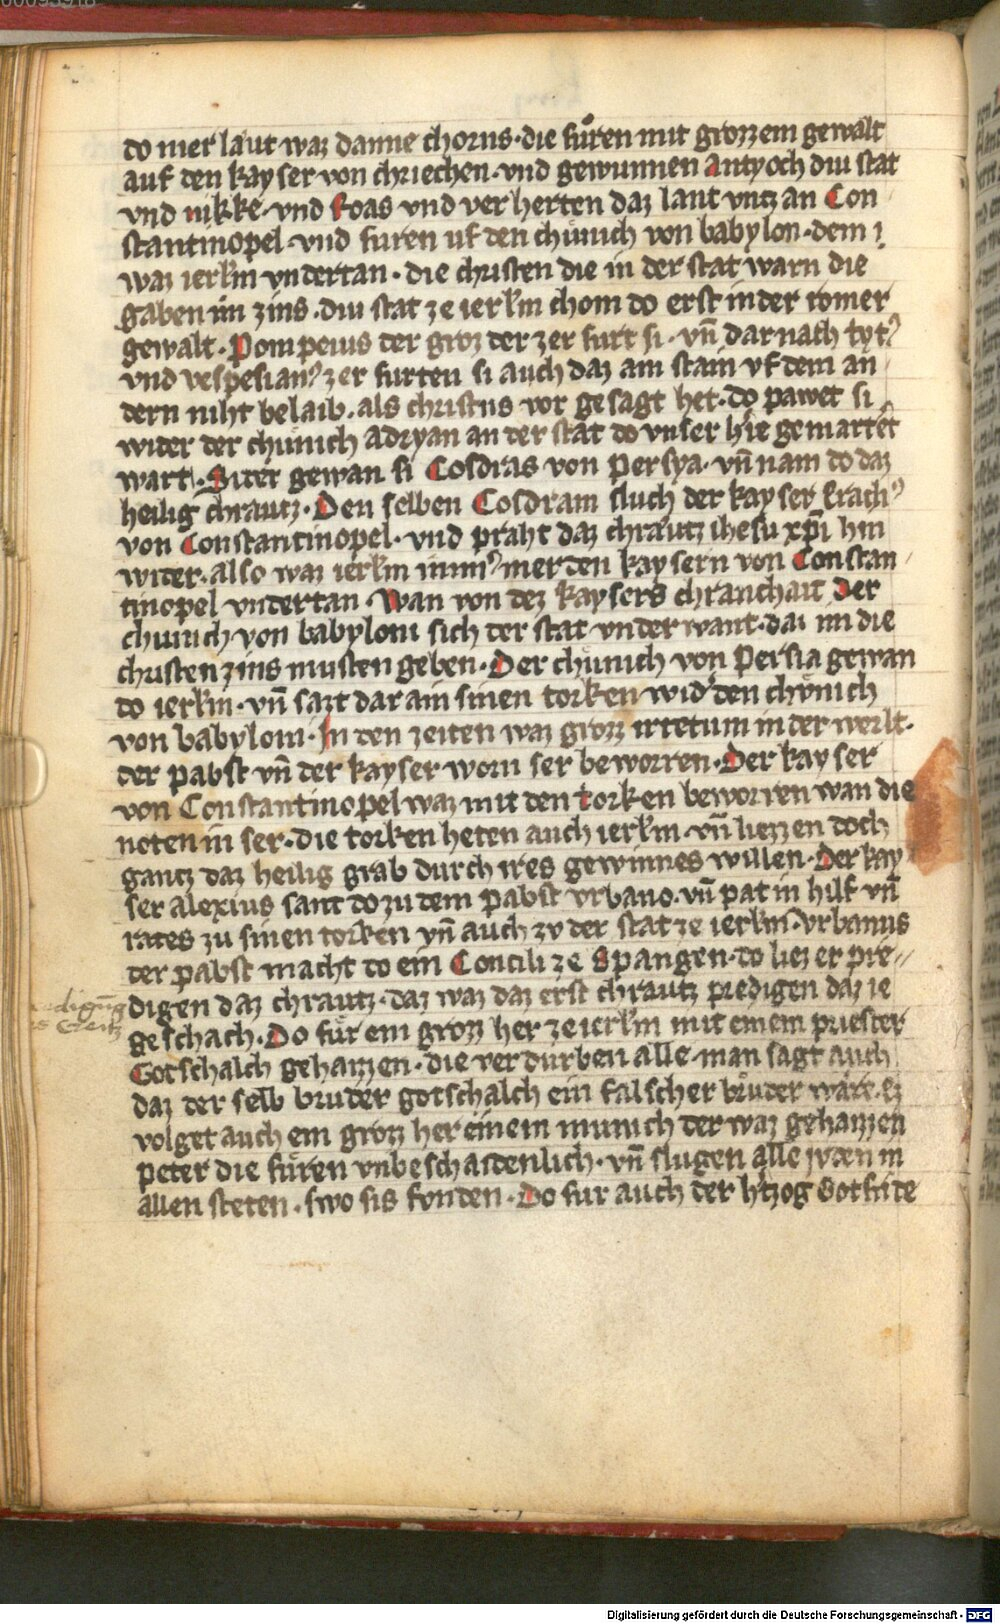 do mer laut waz danne chorns · die fůren mit grozzem gewalt
auf den kayser von chriechen · vnd gewunnen Antyoch diu stat
vnd nikke · vnd Roas vnd verherten daz lant vntz an Con
stantinopel · vnd furen uf den chunich von babylon · dem
waz ierl'm vndertan · die christen die in der stat warn die
gaben im zins · diu stat ze ierl'm chom do erst in der romer
gewalt · Pompeius der groz der zerfurt si · vn̄ dar nach tyt9
vnd vespesian9 zerfurten si auch daz ain stain vf dem an
dern niht belaib · als christus vor gesagt het · do pawet si
wider der chunich Adryan an der stat do vnser h're gemartert
wart · Siter gewan si Cosdras von Persya · vn̄ nam do daz
heilig chrautz · Den selben Cosdram sluch der kayser Erach9
von Constantinopel · vnd praht daz chrautz ihesu xp̄i hin
wider · also waz ierl'm imm9mer den kaysern von Constan
tinopel vndertan · Wan von dez kaysers chranchait Der
chunich von babyloni sich der stat vnderwant · daz im die
christen zins musten geben · Der chůnich von Persia gewan
do ierl'm · vn̄ sazt dar ain sinen torken wid' den chůnich
von babyloni · In den zeiten waz grozz irretum in der werlt ·
der pabst vn̄ der kayser worn ser beworren · Der kayser
von Constantinopel waz mit den torken beworren wan die
noten in ser · die torken heten auch ierl'm · vn̄ liezzen doch
gantz daz heilig grab durch ires gewinnes willen · Der kay
ser alexius sant do zu dem pabst vrbano · vn̄ pat in hilf vn̄
rates zu sinen torken vn̄ auch zv der stat ze ierl'm · Vrbanus
der pabst macht do ein Concili ze Spangen · do liez er pre〃
digen daz chrautz · daz waz daz erst chrautz predigen daz ie
geschach · Do fůr ein grozz her ze ierl'm mit einem priester
Gotschalch gehaizzen · die verdurben alle · man sagt auch
daz der selb bruder gotschalch ein falscher brůder wäre · Ez
volget auch ein grozz her einem munich der waz gehaizzen
peter die fůren vnbeschaidenlich · vn̄ slugen alle jvden in
allen steten · swo sis fvnden · Do fur auch der h'tzog Gotfride